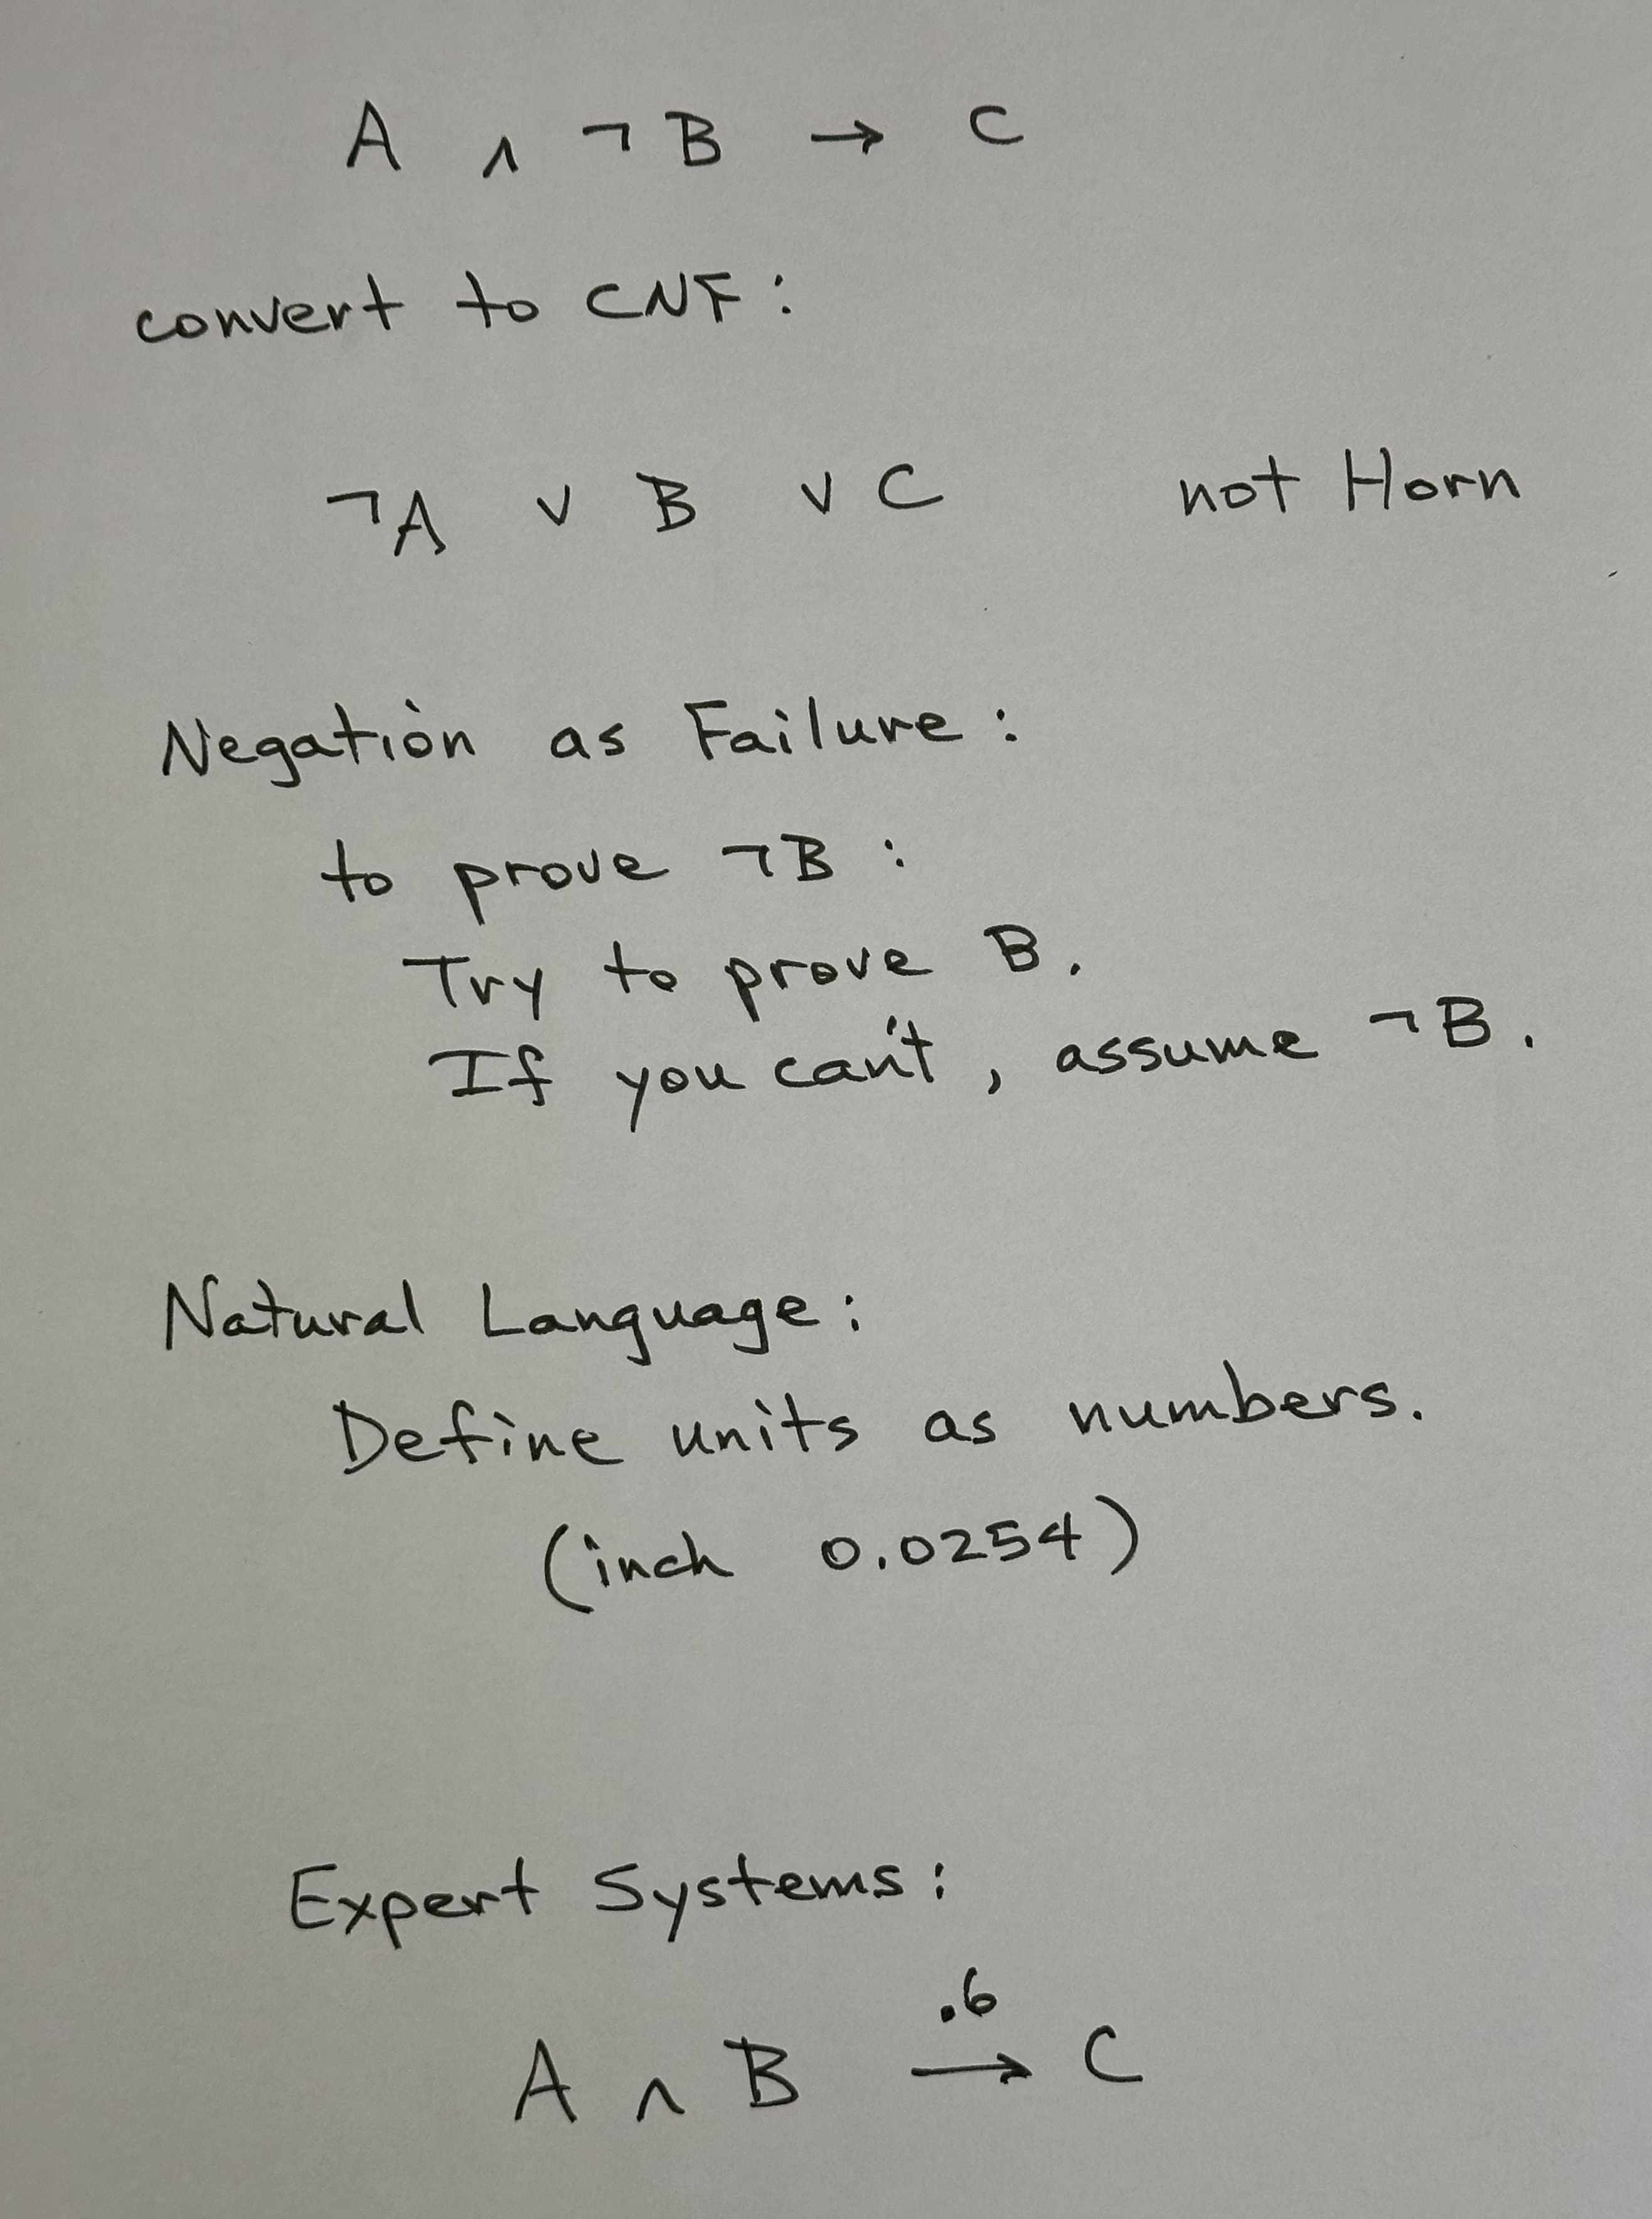 A ∧ ¬B → C
convert to CNF:
¬A ∨ B ∨ C not Horn
Negation as Failure:
to prove ¬B:
Try to prove B.
If you can't, assume ¬B.
Natural Language:
Define units as numbers.
(inch 0.0254)
Expert Systems:
.6
A ∧ B → C